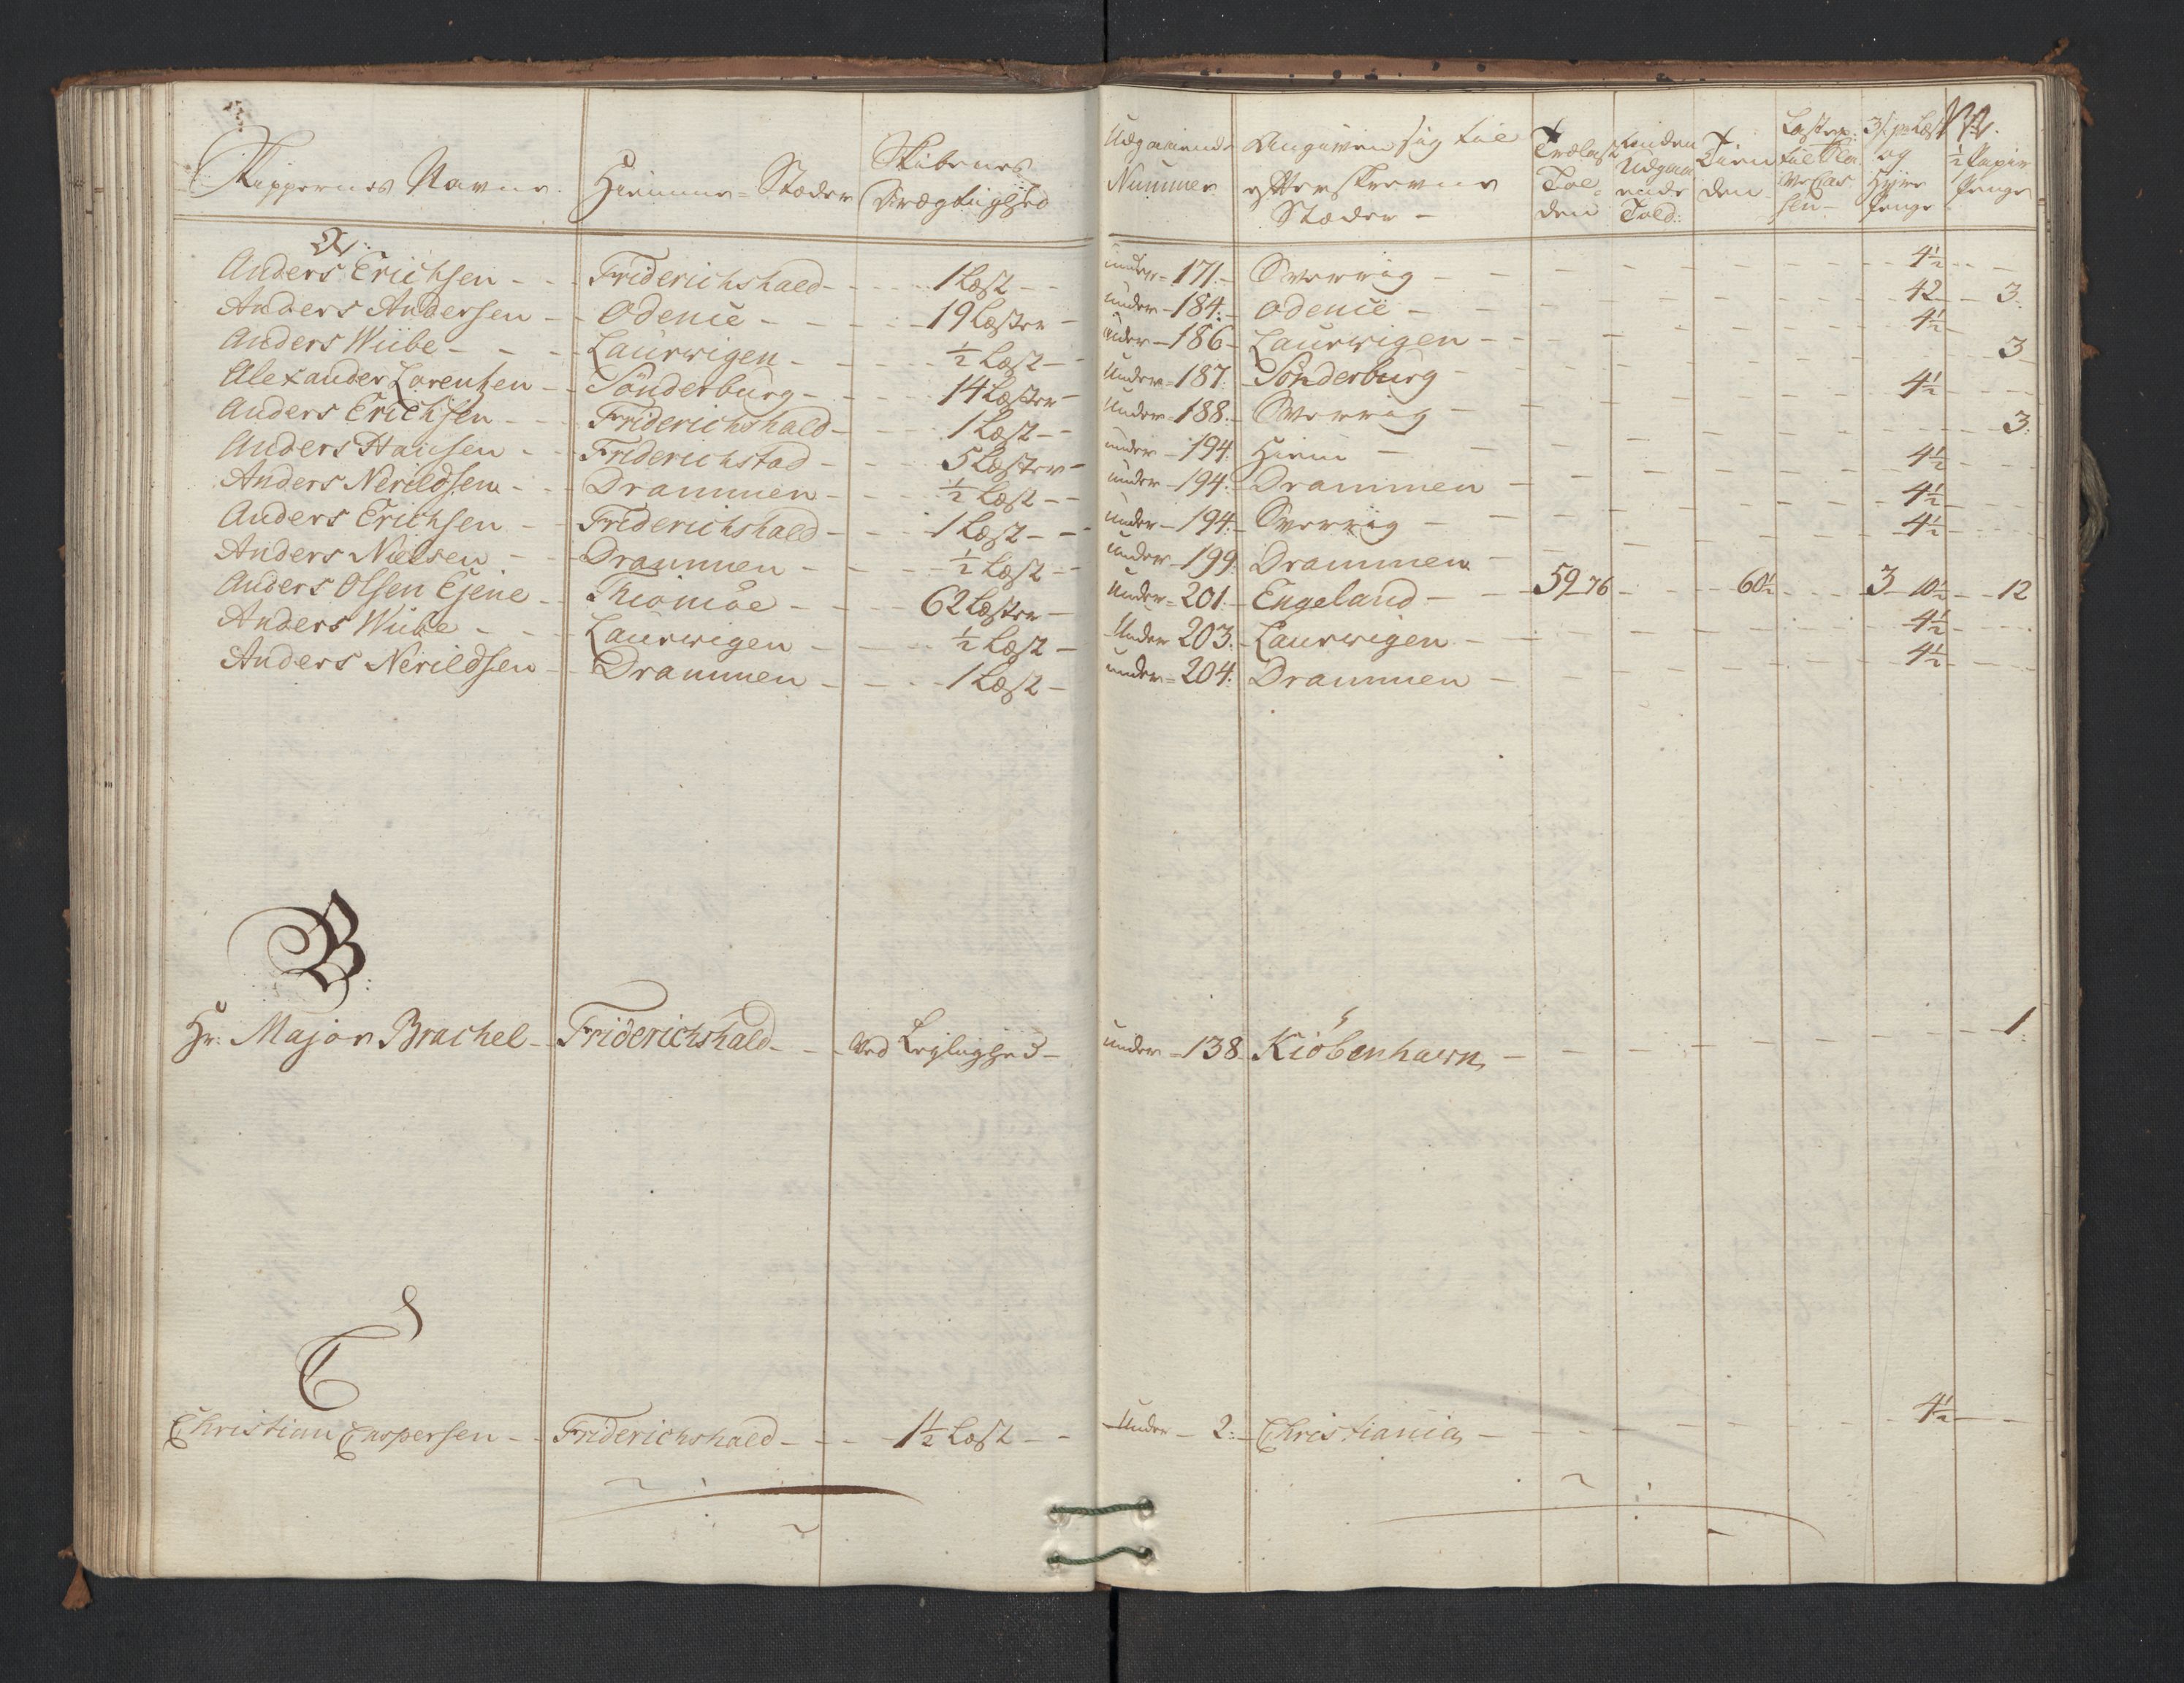 Skippernes Navne. Hiemme-Stæder Skibenes Drægtighed Udgaaende Nummer Angiven sig til efterskrevne Stæder - Trælast Tolden Anden Udgaaende Told: Tienden Lastep: til 3 s. pr Læst og Hyre Penge ½ Papir Penge
A:
Anders Erichsen - - Friderichshald - - 1 Læst - - under - 171. - Sverrig - - 4½ - -
Anders Andersen - - Odense - - 19 Læster - under - 184: - Odense - - 42 - - 3.
Anders Wiibe - - - Laurwigen - - ½ Læst - - under - 186 - Laurwigen - - 4½ -
Alexander Lorentzen - - Sönderburg - - 14 Læster - Under - 187: - Sönderburg - - 3
Anders Erichsen - - Friderichshald - - 1 Læst - - Under - 188. - Sverrig - - 4½ - -
Anders Hansen - - Friderichstad - - 5 Læster - under - 194: Hiem - - 3.
Anders Nerildsen - - Drammen - - ½ Læst - - under - 194: - Drammen - - 4½ - -
Anders Erichsen - - Friderichshald - - 1 Læst - - under - 194: - Sverrig - - 4½ - -
Anders Nielsen - - Drammen - - ½ Læst - - Under - 199: Drammen - - 4½ - -
Anders Olsen Ejene - Thiomöe - - 62 Læster - Under - 201. - Engeland - - 59 - 76 - - 60½ - - 3 - 10½ - - 12
Anders Wiibe - - - Laurwigen - - ½ Læst - Under 203. - Laurwigen - - 4½ - -
Anders Nerildsen - Drammen - - 1 Læst - under - 204. Drammen - - 4½ - -
B:
Hr: Major Brachel - Friderichshald - - Ved Leylighed - under - 138 - Kiöbenhavn, - - 1.
C
Christian Caspersen - - Friderichshald - - 1½ Læst - - Under - 2: - Christiania, - - 4½ - -